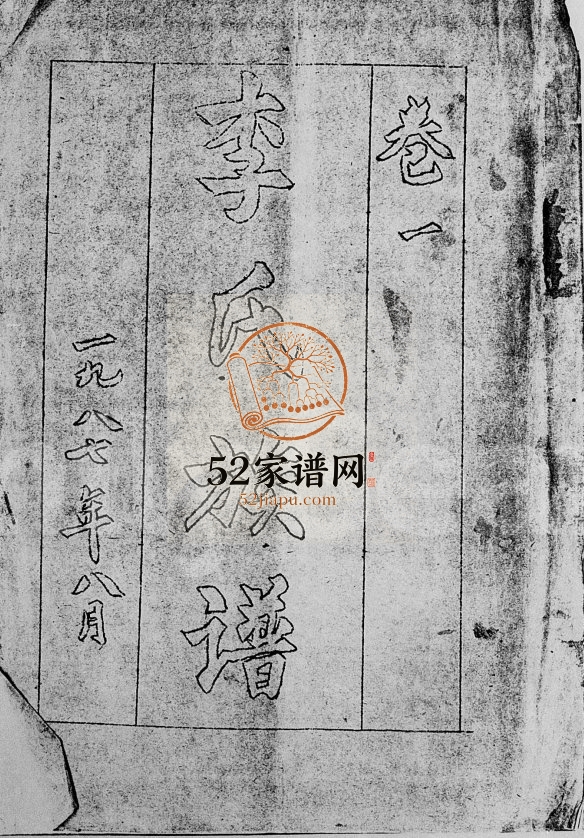 卷一
李氏族谱
一九八七年八月
52家谱网
52jiapu.com